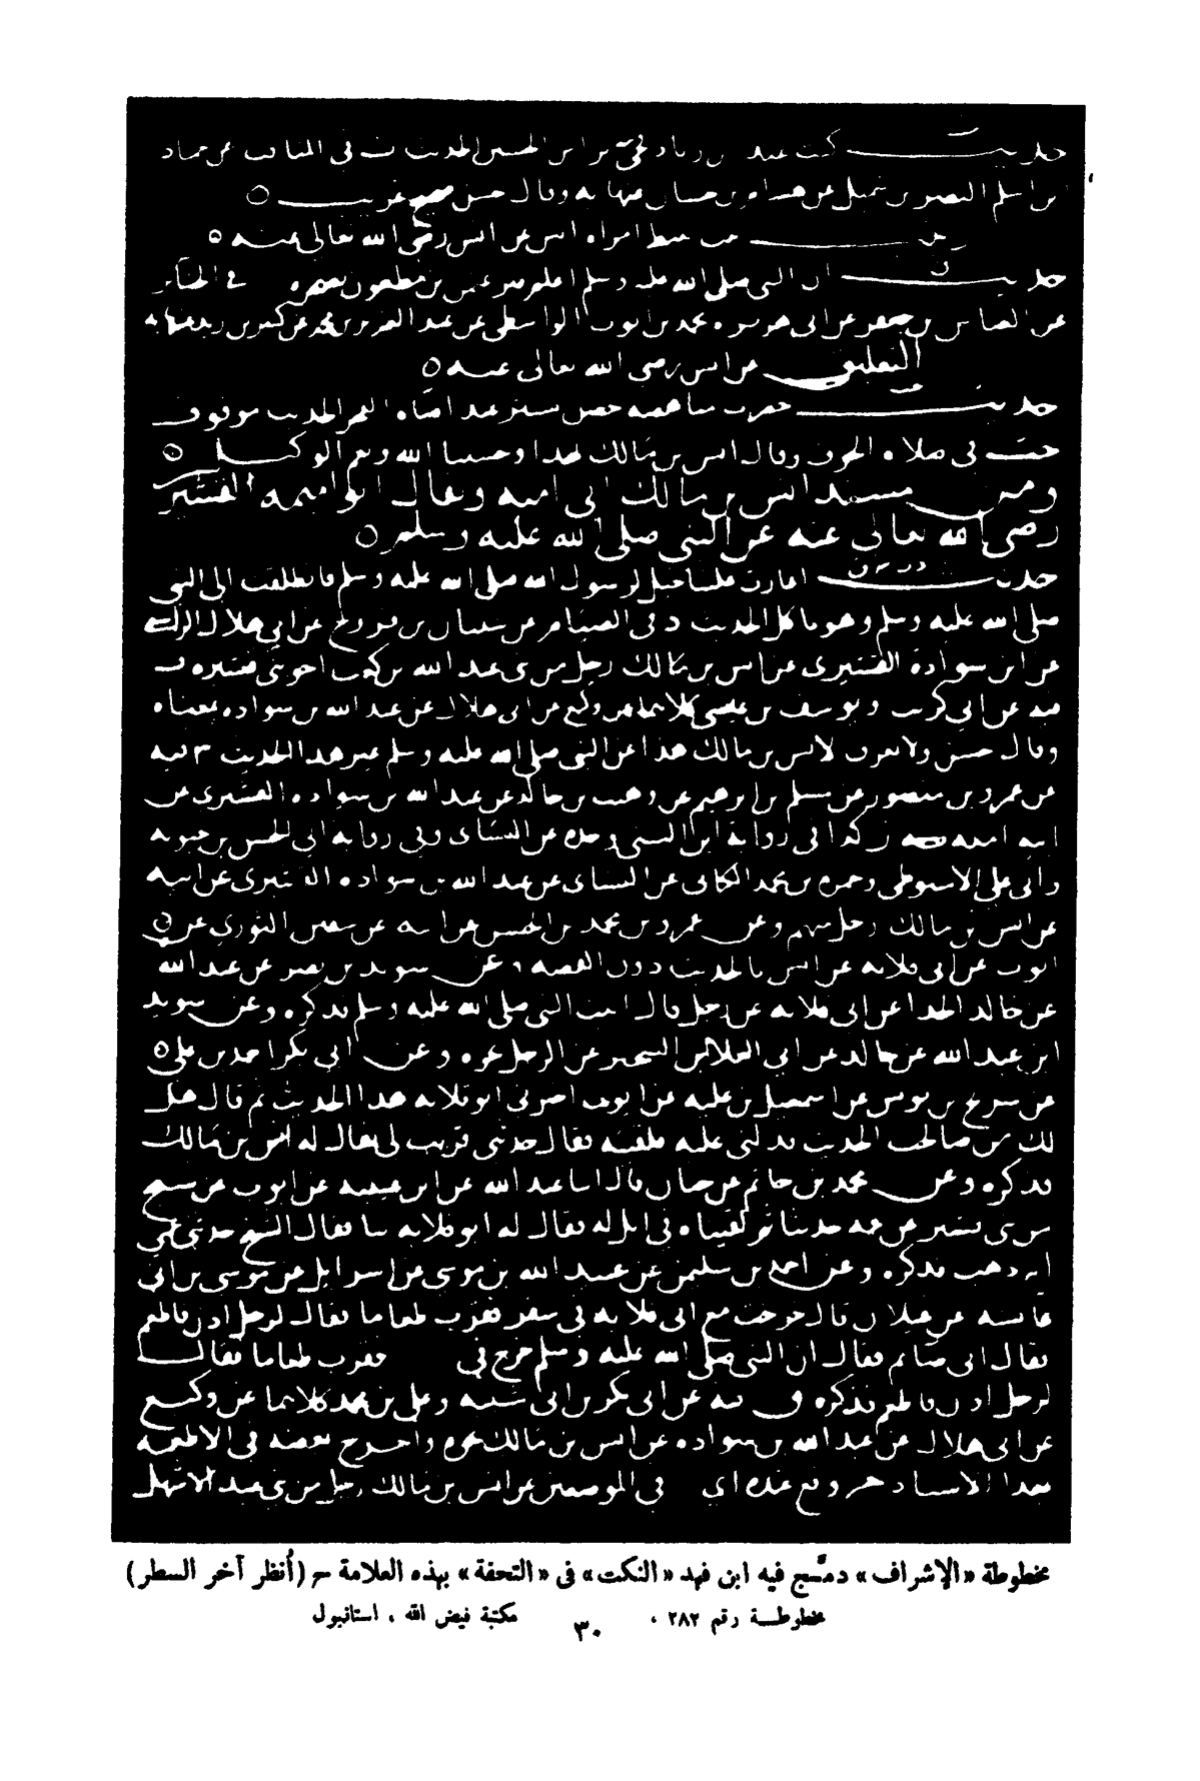 حديث كنت عند بن زياد فجيء براس الحسين الحديث ت في المناقب عن
بن اسلم النضر بن شميل عن هشام بن حسان عنها به وقال حسن صحيح غريب
امراه انس عن انس رضي الله تعالى عنه
حديث ان النبي صلى الله عليه وسلم اعلم قبر عثمن بن مظعون بصخره ق في الجنائز
عن العباس بن جعفر عن ابي هريره محمد بن ايوب الواسطي عن عبد العزيز بن محمد عن كثير بن زيد عنها به
التعليق عن انس رضي الله تعالى عنه
حديث حضرت مناهضه حصن تستر عند اضاه الفجر الحديث موقوف
خت في صلاه الخوف وقال انس بن مالك
ومن مسند انس بن مالك ابي اميه ويقال ابو اميمه القشيري
رضي الله تعالى عنه عن النبي صلى الله عليه وسلم
حديث اغارت علينا خيل لرسول الله صلى الله عليه وسلم فانطلقت الى النبي
صلى الله عليه وسلم وهو ياكل الحديث د في الصيام عن شيبان بن فروخ عن ابي هلال الراسبي
عن ابن سواده القشيري عن انس بن مالك رجل من بني عبد الله بن كعب اخوه بني قشير ه ت
فيه عن ابي كريب ويوسف بن عيسى كلاهما عن وكيع عن ابي هلال عن عبد الله بن سواده بمعناه
وقال حسن ولا نعرف لانس بن مالك هذا عن النبي صلى الله عليه وسلم غير هذا الحديث س فيه
عن عمرو بن منصور عن مسلم بن ابرهيم عن وهيب بن خالد عن عبد الله بن سواده القشيري عن
ابيه عنه كذا في روايه ابن السني وحده عن النسائي وفي روايه ابي الحسن بن حيويه
وابي علي الاسيوطي وحمزه بن محمد الكناني عن النسائي عن عبد الله بن سواده القشيري عن ابيه
عن انس بن مالك رجل منهم وعن عمرو بن محمد بن الحسن عن ابيه عن سفين الثوري عن
ايوب عن ابي قلابه عن انس بالحديث دون القصه وعن سويد بن نصر عن عبد الله
عن خالد الحذا عن ابي قلابه عن رجل قال اتيت النبي صلى الله عليه وسلم فذكره وعن سويد
ابن عبد الله عن خالد عن ابي العلا بن الشخير عن الرجل نحوه وعن ابي بكر احمد بن علي
عن سريج بن يونس عن اسمعيل بن عليه عن ايوب اخبرني ابو قلابه هذا الحديث ثم قال هل
لك في صاحب الحديث فدلني عليه فلقيته فقال حدثني قريب لي يقال له انس بن مالك
فذكره وعن محمد بن حاتم عن حبان قال انا عبد الله عن ابن عيينه عن ايوب عن شيخ
من بني قشير عن عمه حدثنا ثم لقيناه في ابل له فقال له ابو قلابه حدثنا فقال الشيخ حدثني عمي
انه ذهب فذكره وعن احمد بن سليمن عن عبيد الله بن موسى عن اسرائيل عن موسى بن ابي
عائشه عن غيلان قال خرجت مع ابي قلابه في سفر فقرب طعاما فقال لرجل ادن فاطعم
فقال اني صائم فقال ان النبي صلى الله عليه وسلم خرج في فقرب طعاما فقال
لرجل ادن فاطعم فذكره ق فيه عن ابي بكر بن ابي شيبه وعلي بن محمد كلاهما عن وكيع
عن ابي هلال عن عبد الله بن سواده عن انس بن مالك نحوه واخرج بعضه في الاطعمه
بهذا الاسناد في الموضعين عن انس بن مالك رجل من بني عبد الاشهل
مخطوطة «الإشراف» دمَّج فيه ابن فهد «النكت» في «التحفة» بهذه العلامة ﺣ (أُنظر آخر السطر)
مخطوطة رقم ٢٨٢ ، مكتبة فيض الله ، استانبول
٣٠